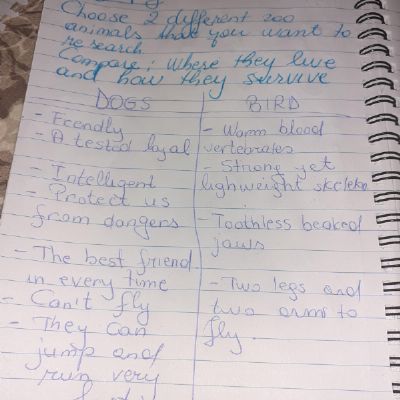 Choose 2 different zoo
animals that you want to
research
Compare: where they live
and how they survive
DOGS
- Fcendly
- A tested loyal
- Intelligent
- Protect us
from dangers
- The best friend
in every time
- Can't fly
- They can
jump and
run very
BIRD
- Warm blood
vertebrates
- Strong yet
lighweight skeleke
- Toothless beaked
jaws
- Two legs and
two arms to
fly.